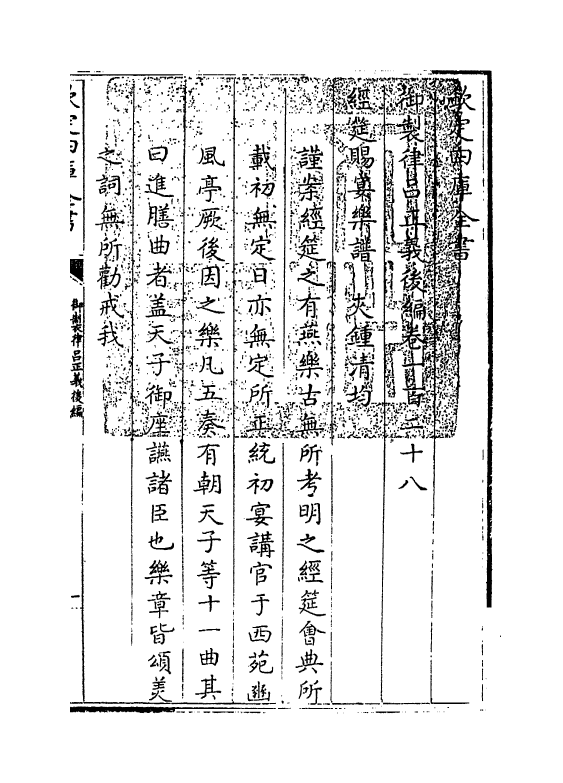 欽定四庫全書
御製律呂正義後編卷一百二十八
經筵賜宴樂譜 夾鍾清均
謹案經筵之有燕樂古無所考明之經筵會典所
載初無定日亦無定所正統初宴講官于西苑豳
風亭厥後因之樂凡五奏有朝天子等十一曲其
曰進膳曲者盖天子御座讌諸臣也樂章皆頌美
之詞無所勸戒我
欽定四庫全書
御製律呂正義後編
一